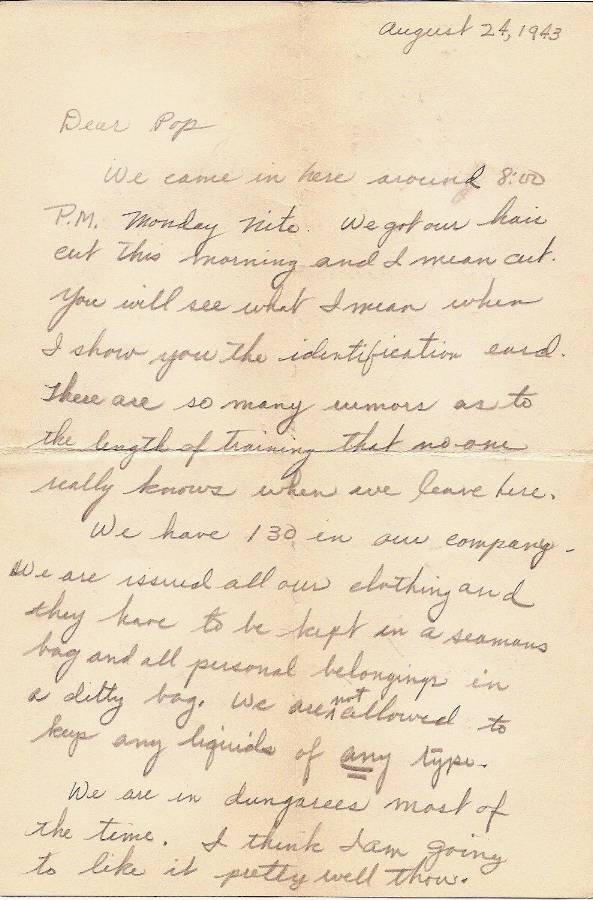 August 24, 1943
Dear Pop
We came in here around 8:00
P.M. Monday Nite. We got our hair
cut this morning and I mean cut.
You will see what I mean when
I show you the identification card.
There are so many rumors as to
the length of training that no one
really knows when we leave here.
We have 130 in our company.
We are issued all our clothing and
they have to be kept in a seamans
bag and all personal belongings in
a ditty bag. We are not allowed to
keep any liquids of any type.
We are in dungarees most of
the time. I think I am going
to like it pretty well thou.